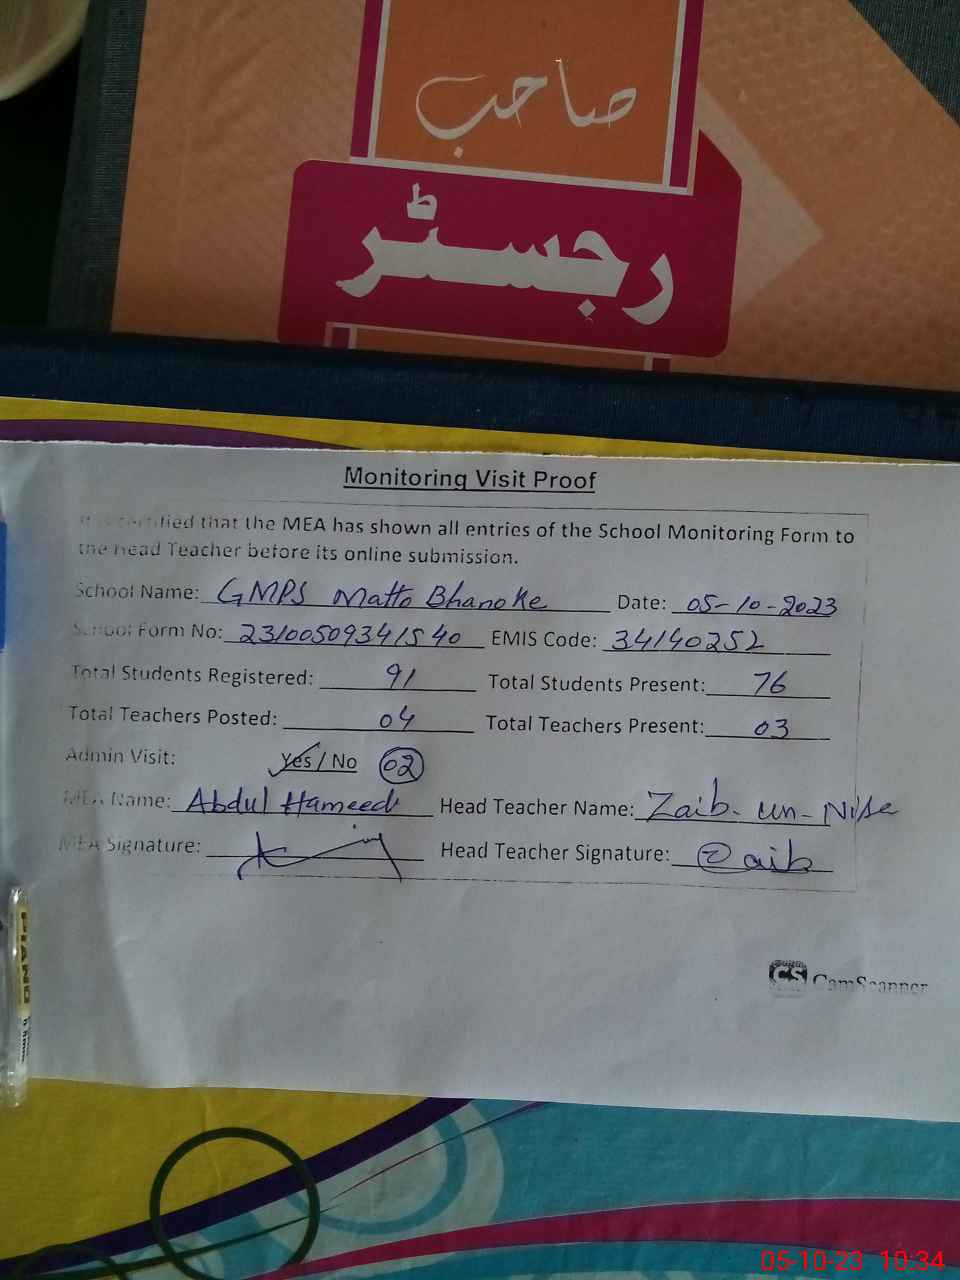 صاحب
رجسٹر
Monitoring Visit Proof
It is certified that the MEA has shown all entries of the School Monitoring Form to
the Head Teacher before its online submission.
School Name: GMPS Matto Bhanoke Date: 05-10-2023
School Form No: 23100509341540 EMIS Code: 34140252
Total Students Registered: 91 Total Students Present: 76
Total Teachers Posted: 04 Total Teachers Present: 03
Admin Visit: Yes / No 02
MEA Name: Abdul Hameed Head Teacher Name: Zaib-un-Nisa
MEA Signature: Head Teacher Signature: Zaib
CS CamScanner
PIANO
05-10-23 10:34